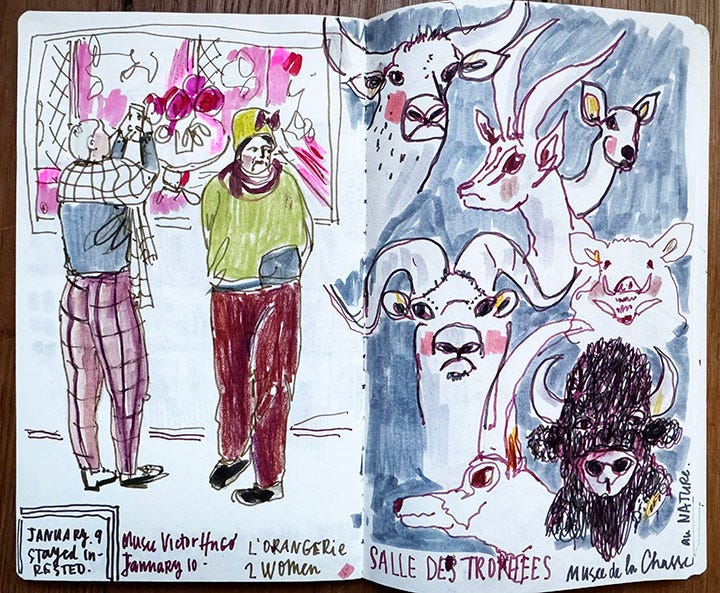 JANUARY. 9
STAYED IN-
RESTED.
Musée Victor Hugo
January 10-
L'ORANGERIE
2 WOMEN
SALLE DES TROPHÉES
Musée de la Chasse
au NATURE.